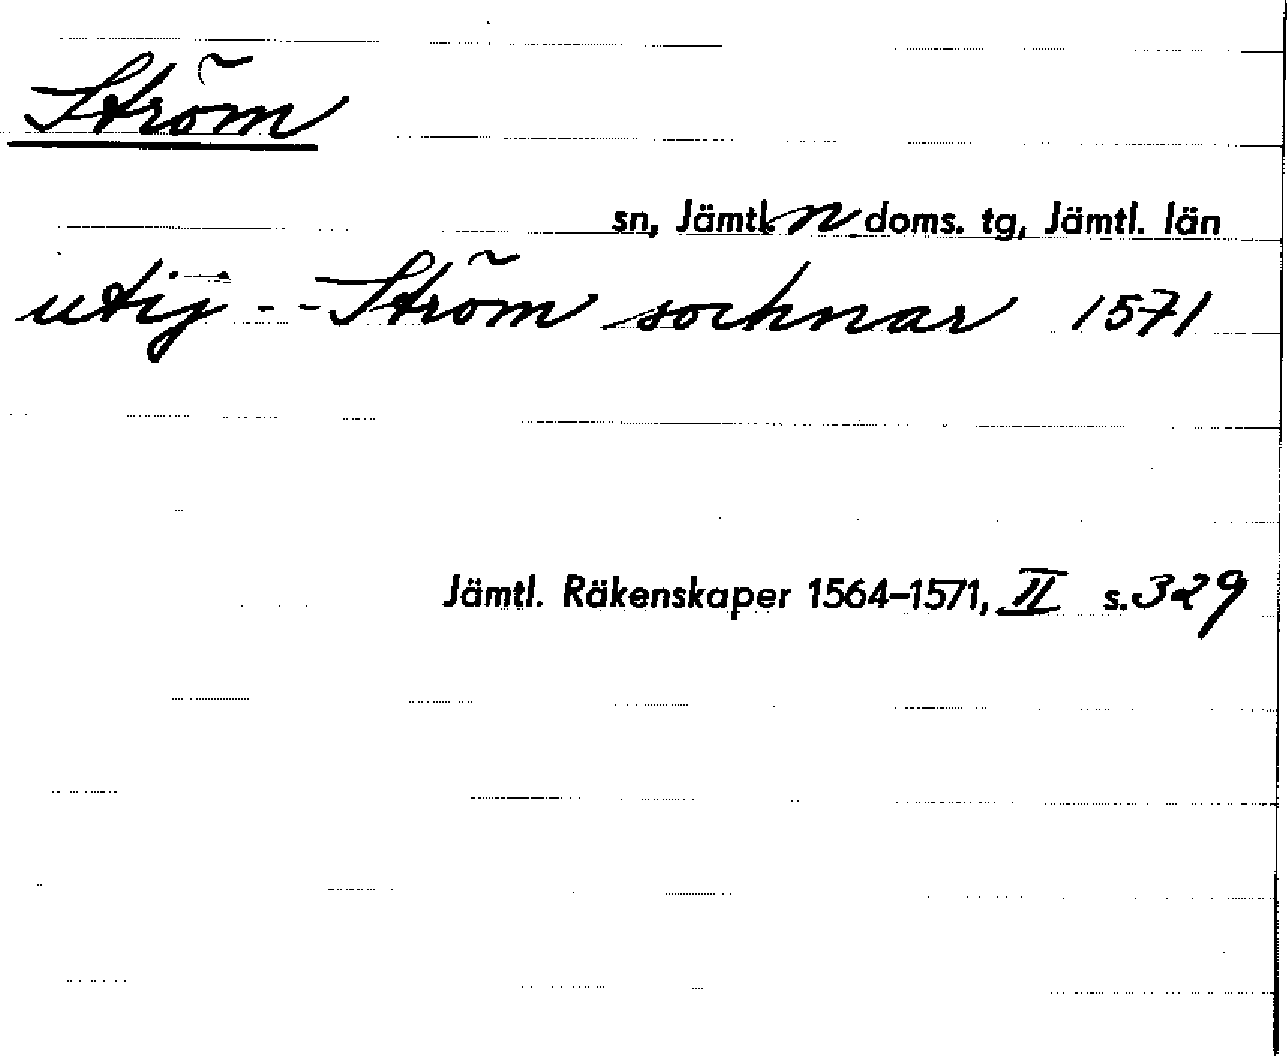 Ström
sn, Jämtl. n doms. tg, Jämtl. län
utij - - Ström sochnar 1571
Jämtl. Räkenskaper 1564-1571, II s. 329